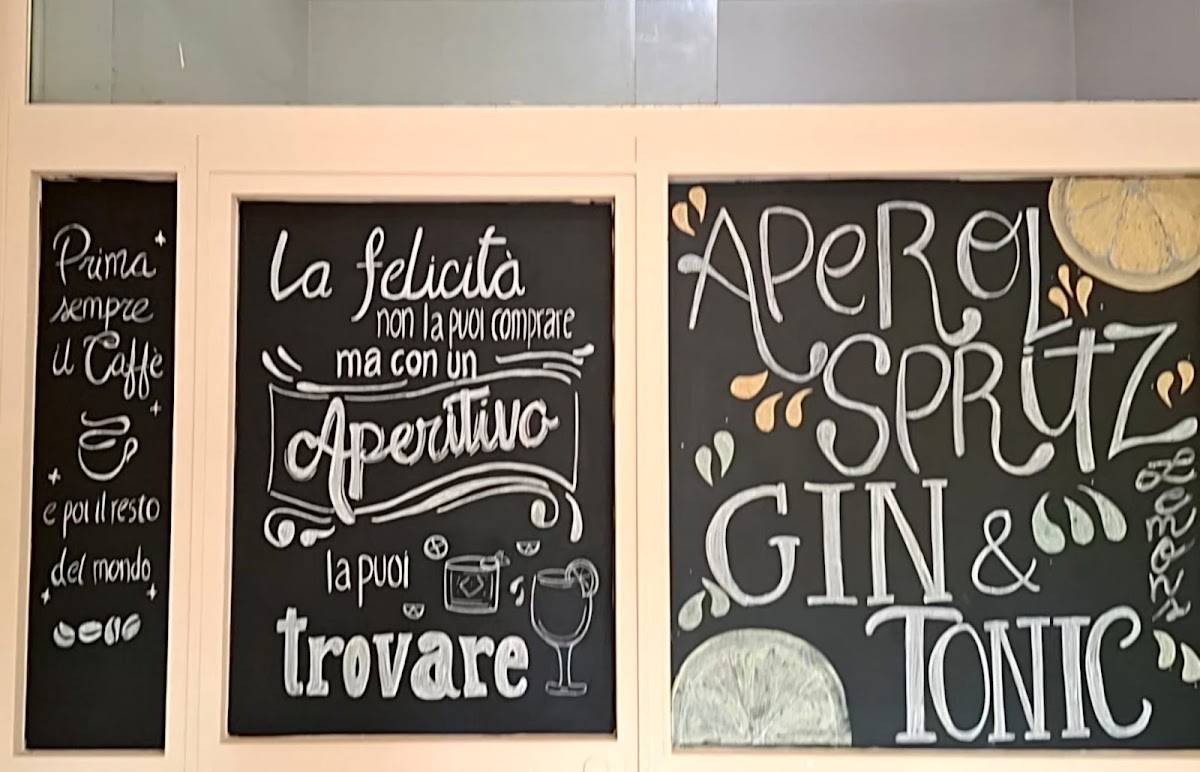 Prima
sempre
il Caffè
e poi il resto
del mondo
La felicità
non la puoi comprare
ma con un
Aperitivo
la puoi
trovare
APEROL
SPRITZ
GIN &
TONIC